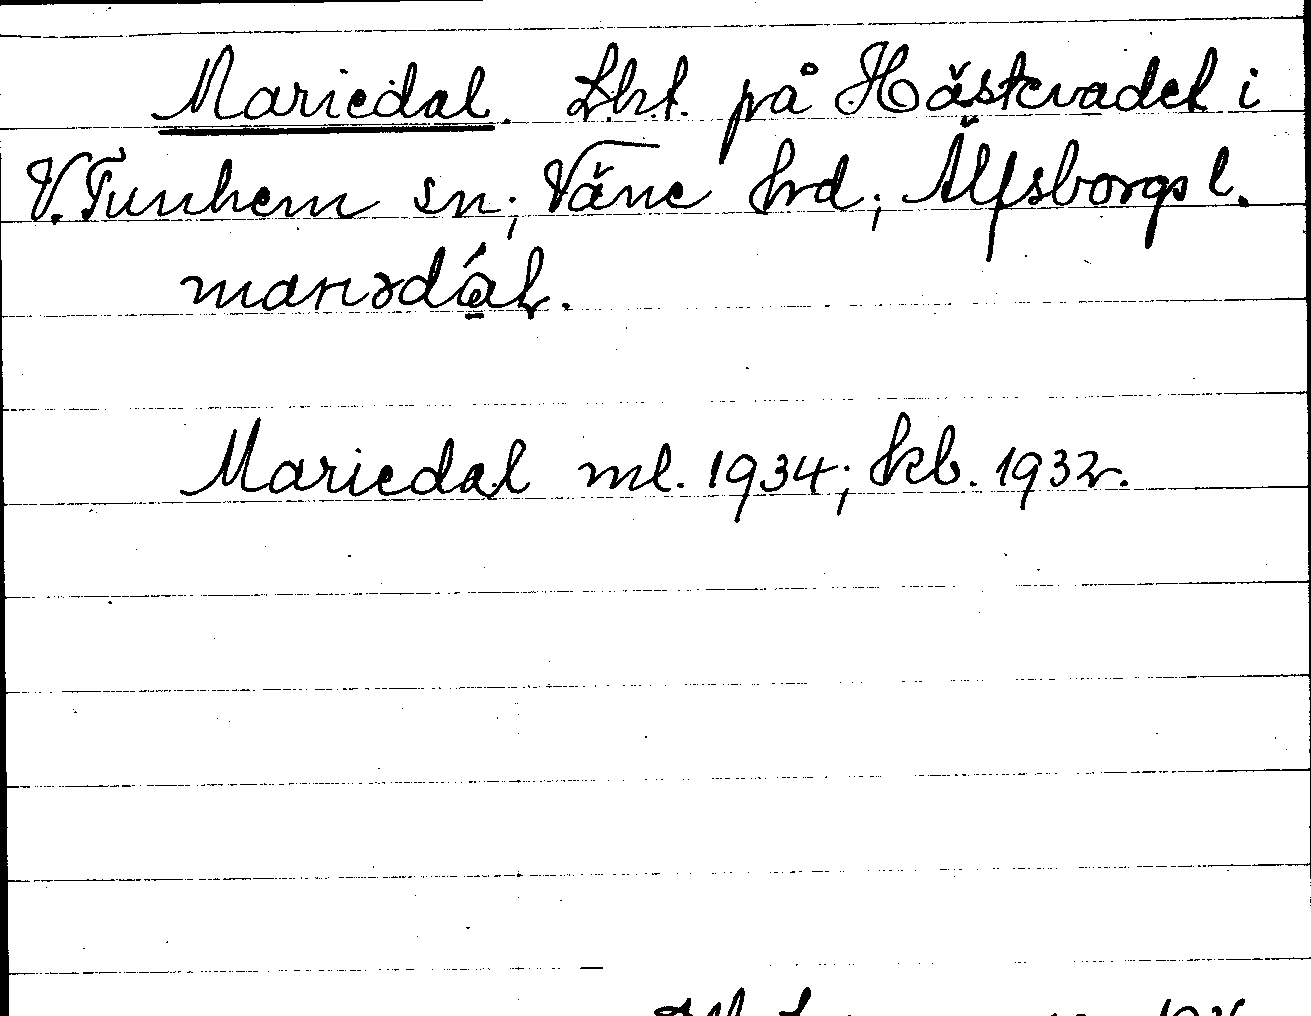 Mariedal. Lht. på Hästevadet i
V. Tunhem sn; Väne hrd; Älfsborgs l.
marıədá̱l.
Mariedal ml. 1934; kb. 1932.